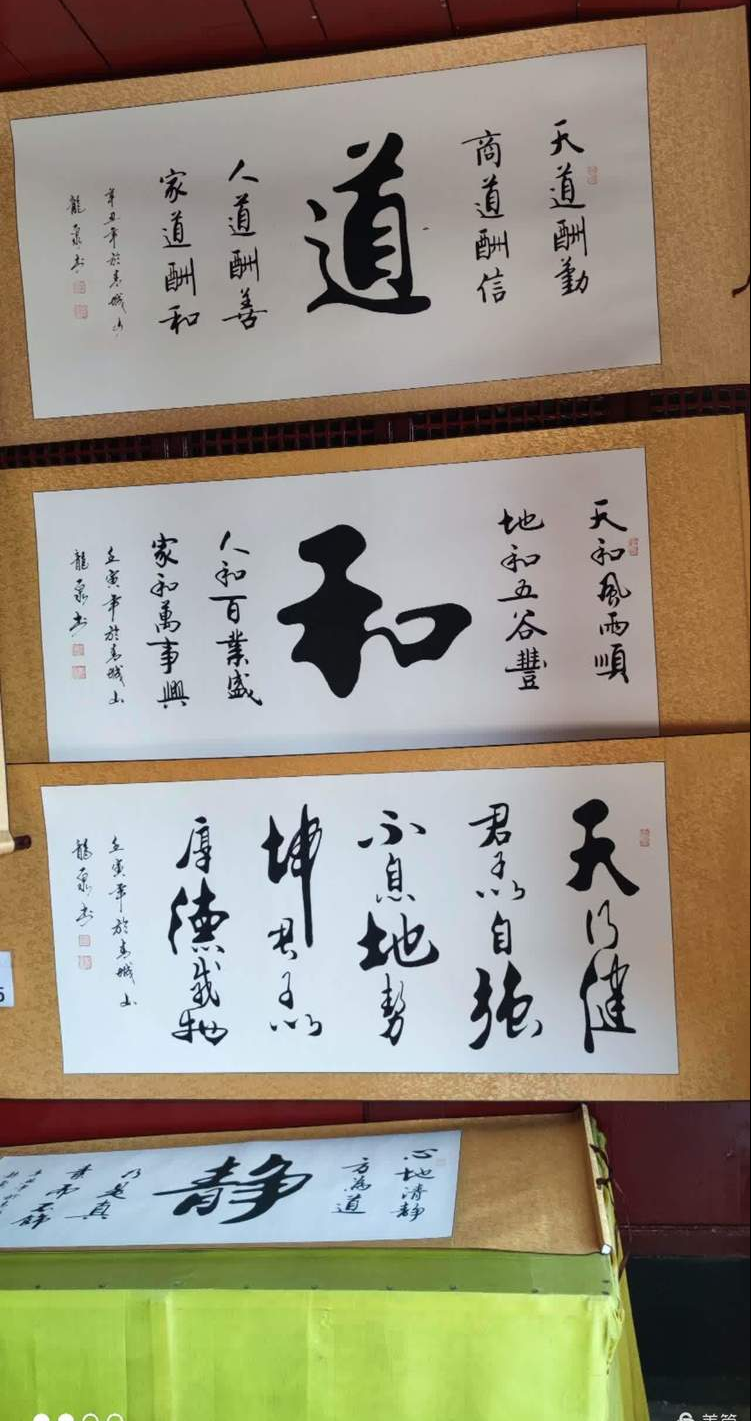 天道酬勤
商道酬信
道
人道酬善
家道酬和
辛丑年於青城山
龍泉书
天和風雨順
地和五谷豐
和
人和百業盛
家和萬事興
壬寅年於青城山
龍泉书
天行健
君子以自强
不息地势
坤君子以
厚德载物
壬寅年於青城山
龍泉书
心地清静
方為道
静
乃是真